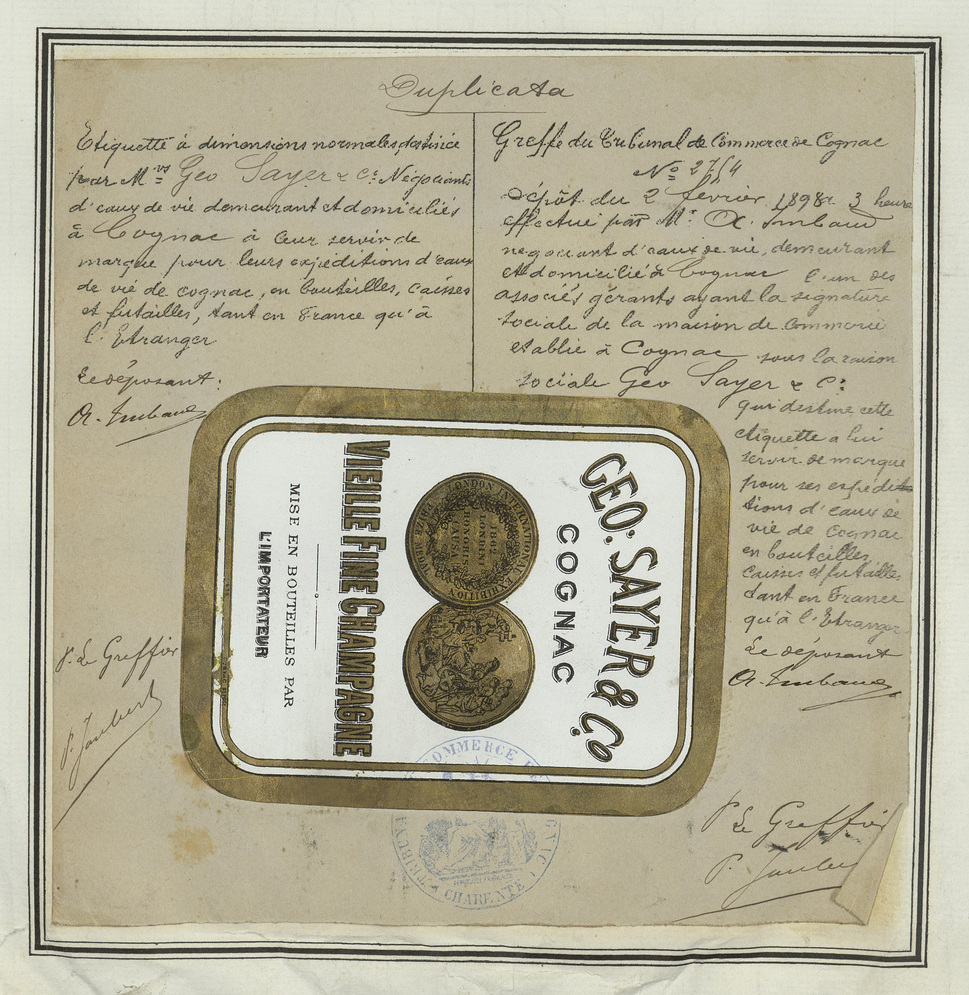 Duplicata
Etiquette à dimensions normales destinée
par Mrs Geo Sayer & Cº Négociants
d'eaux de vie demeurant et domiciliés
à Cognac à leur servir de
marque pour leurs expéditions d'eaux
de vie de cognac, en bouteilles, caisses
et futailles, tant en France qu'à
l'Etranger
Le déposant:
A. Imbaud
P. Le Greffier
P. Jaubert
Greffe du Tribunal de Commerce de Cognac
Nº 2754
Dépôt du 2 février 1898 à 3 heures
effectué par Mr A. Imbaud
négociant d'eaux de vie, demeurant
et domicilié à Cognac l'un des
associés gérants ayant la signature
sociale de la maison de Commerce
établie à Cognac sous la raison
sociale Geo Sayer & Cº:
qui destine cette
étiquette a lui
servir de marque
pour ses expédi-
tions d'eaux de
vie de Cognac
en bouteilles,
caisses et futailles
tant en France
qu'à l'Etranger
Le déposant
A. Imbaud
P. Le Greffier
P. Jaubert
GEO: SAYER & Cº
COGNAC
LONDON INTERNATIONAL EXHIBITION
1862
LONDINI
HONORIS
CAUSA
VIEILLE FINE CHAMPAGNE
MISE EN BOUTEILLES PAR
L'IMPORTATEUR
COMMERCE DE
TRIBUNAL
CHARENTE